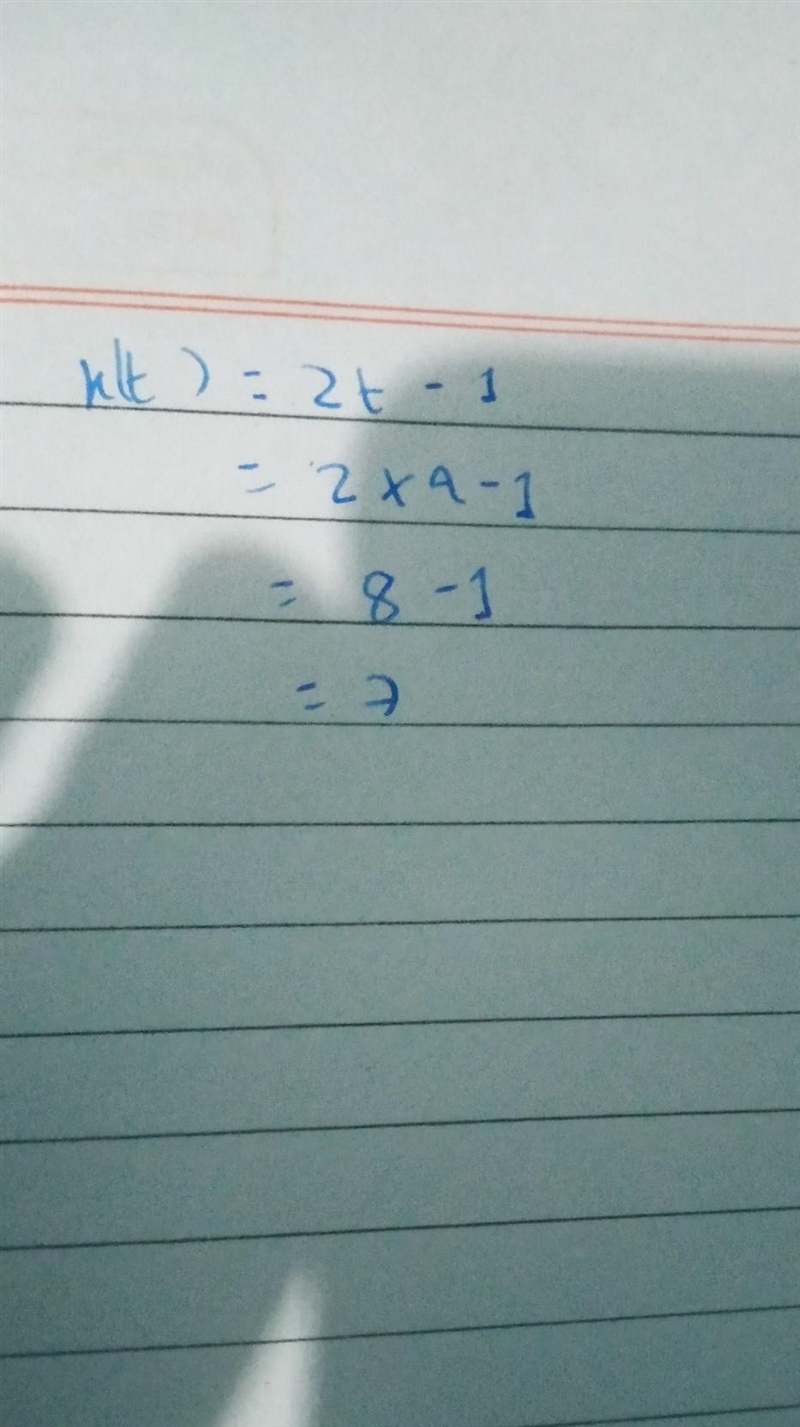 k(t) = 2t - 1
= 2 x 4 - 1
= 8 - 1
= 7